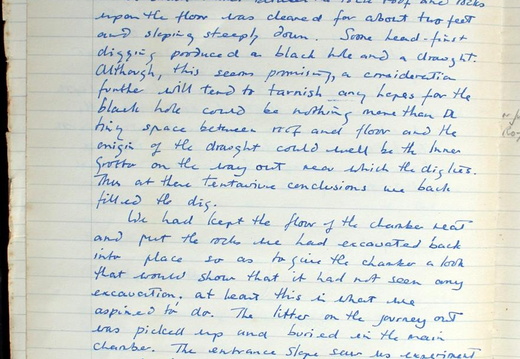 roof and rocks
upon the floor was cleared for about two feet
and sloping steeply down. Some head-first
digging produced a black hole and a draught.
Although, this seems promising, a consideration
further will tend to tarnish any hopes for the
black hole could be nothing more than a
tiny space between roof and floor and the
origin of the draught could well be the Inner
Grotto on the way out near which the dig lies.
Thus at these tentative conclusions we back
filled the dig.
We had kept the floor of the chamber neat
and put the rocks we had excavated back
into place so as to give the chamber a look
that would show that it had not seen any
excavation. at least this is what we
aspired to do. The litter on the journey out
was picked up and buried in the main
chamber. The entrance slope saw us experiment